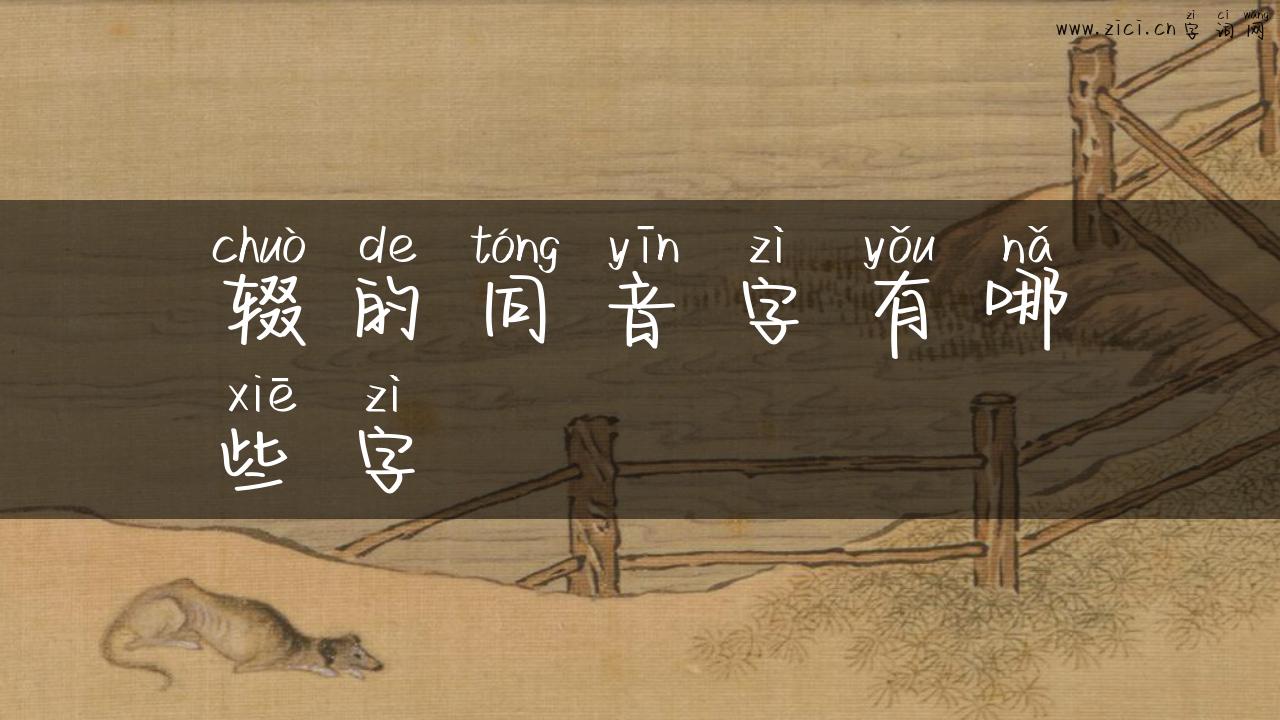 zì cí wǎng
www.zici.cn 字词网
chuò de tóng yīn zì yǒu nǎ
辍的同音字有哪
xiē zì
些字